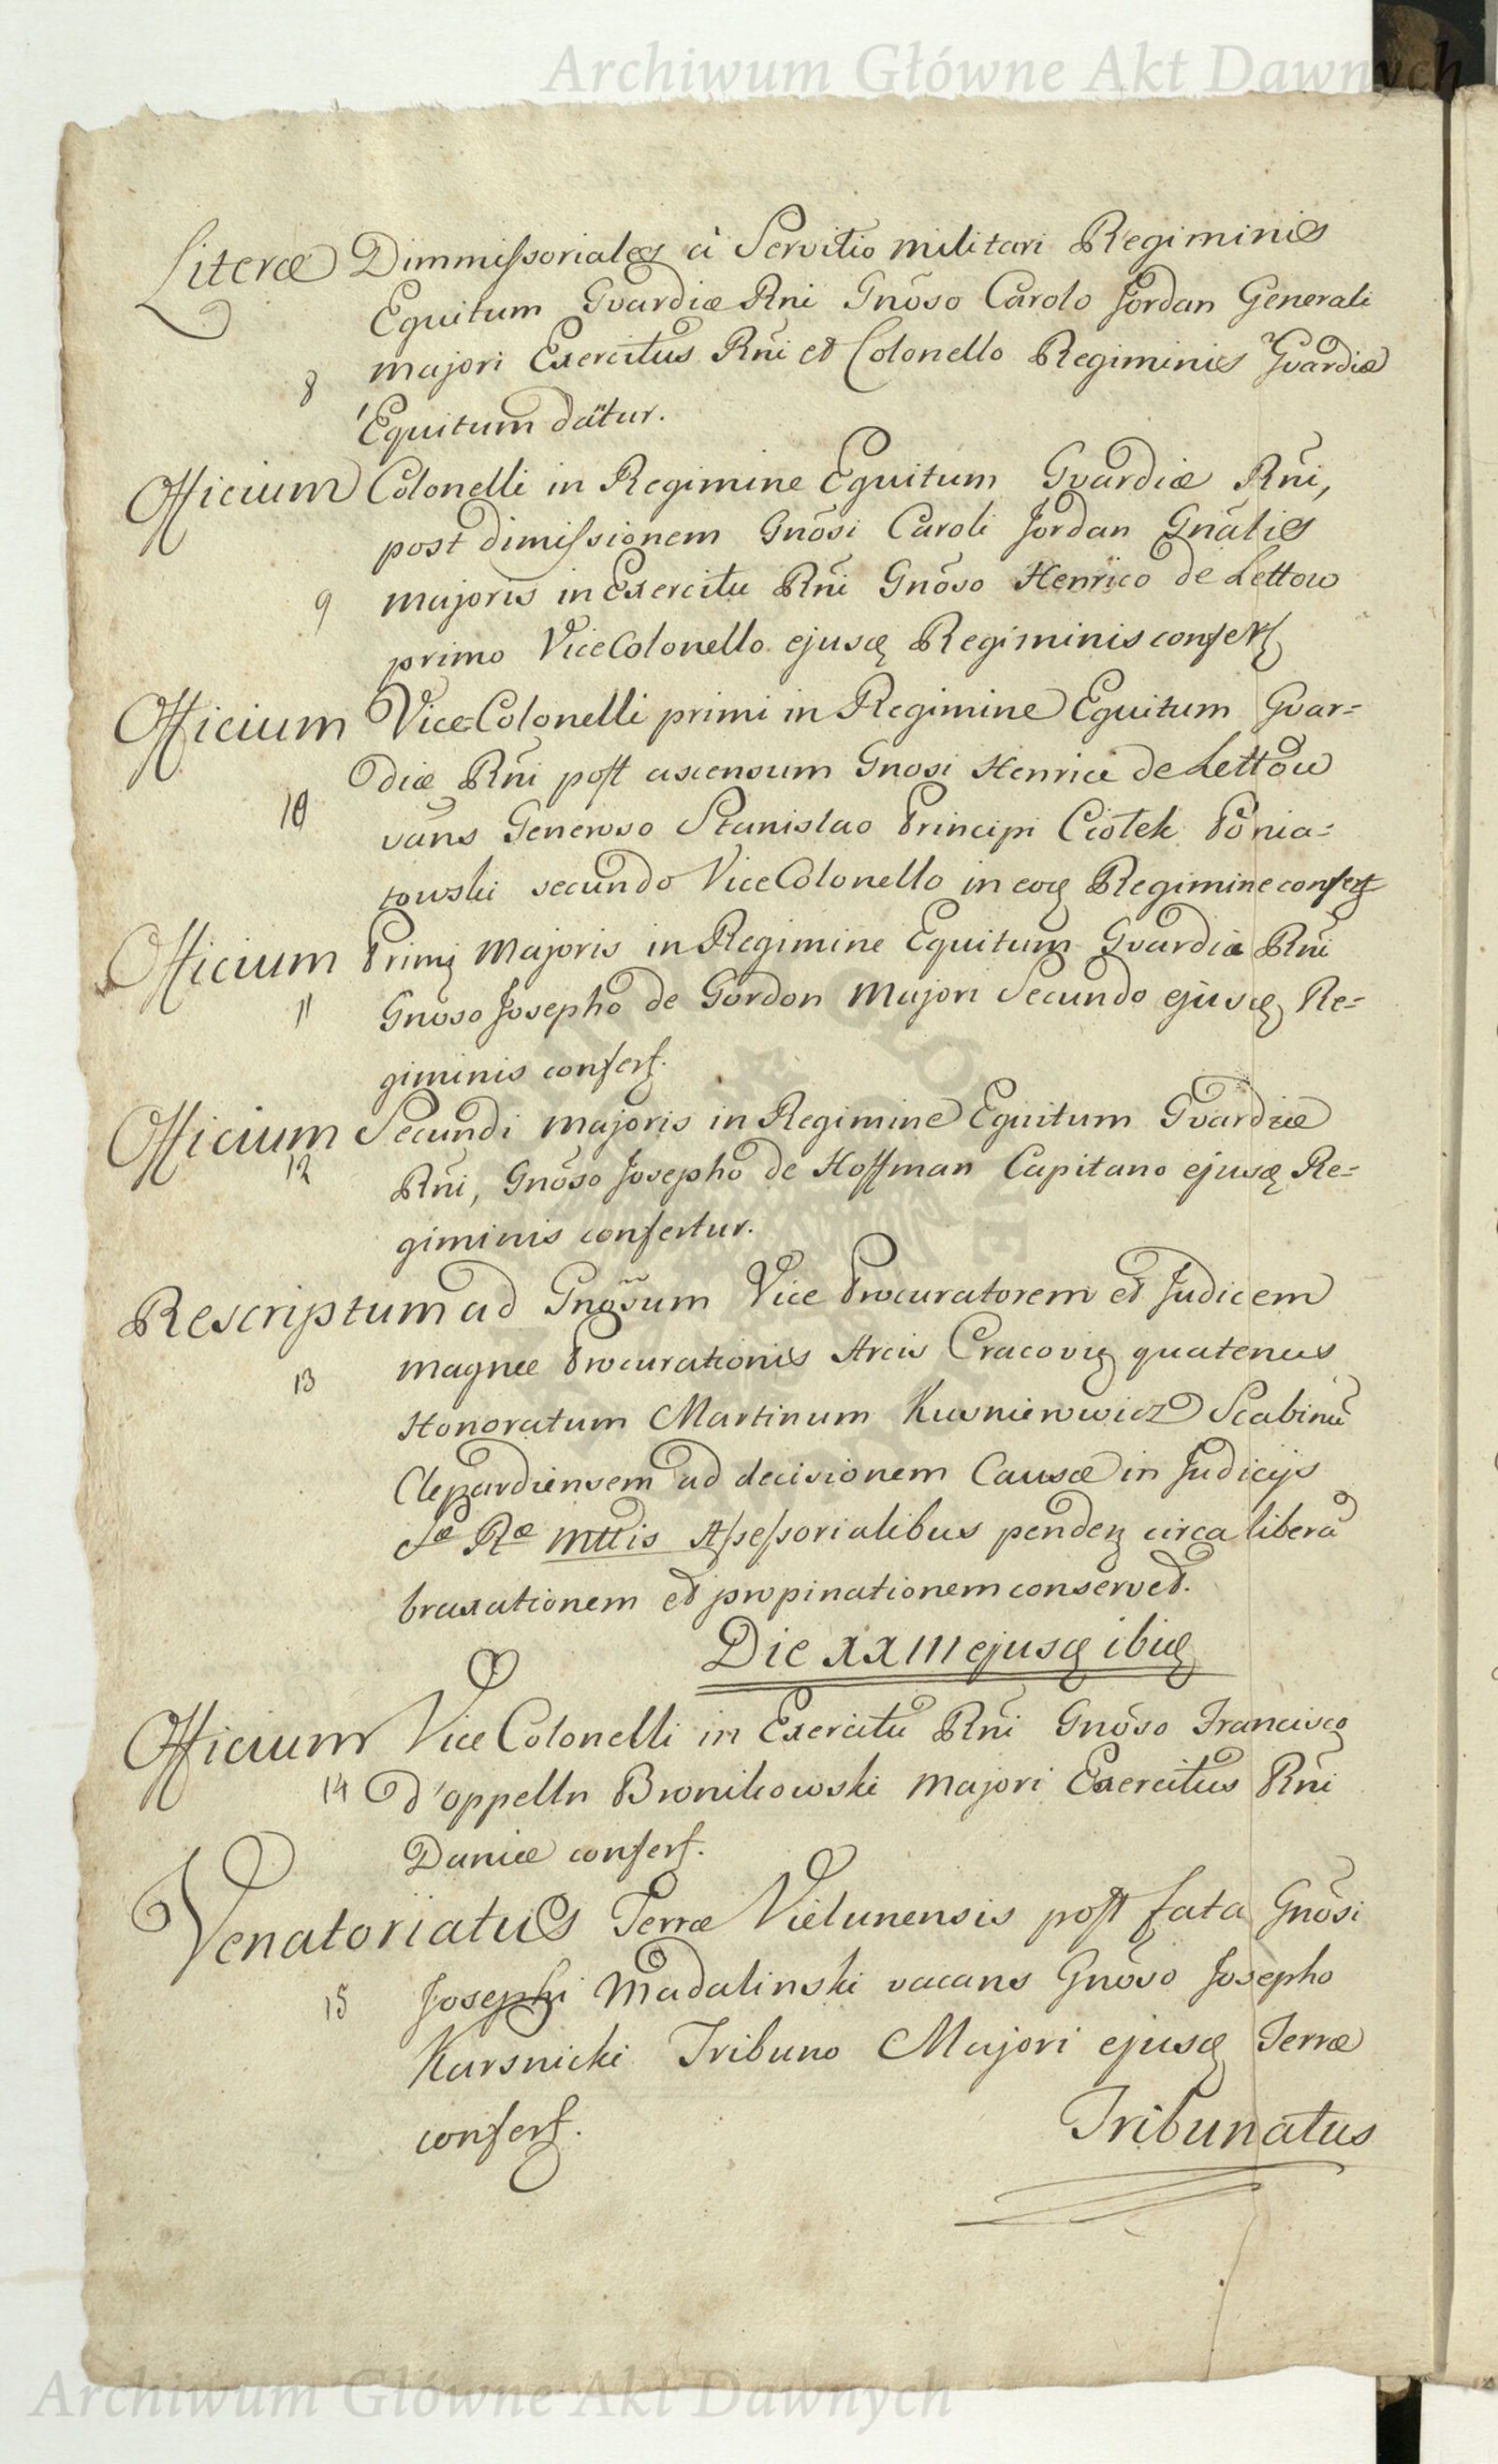 Archiwum Główne Akt Dawnych
Literæ Dimmissoriales à Servitio militari Regiminis
Equitum Gvardiæ Rni Gnõso Carolo Jordan Generali
majori Exercitus Rñi et Colonello Regiminis Gvardiæ
8
Equitum dãtur.
Officium Colonelli in Regimine Equitum Gvardiæ Rñi,
post dimissionem Gnõsi Caroli Jordan Gnãlis
9 majoris in Exercitu Rñi Gnõso Henrico de Lettow
primo ViceColonello ejusq Regiminis confert
Officium Vice-Colonelli primi in Regimine Equitum Gvar=
diæ Rñi post ascensum Gnosi Henrici de Lettow
10 vãns Generoso Stanislao Principi Ciołek Ponia=
towski secundo ViceColonello in eoq Regimine confert
Officium Primi Majoris in Regimine Equitum Gvardiæ Rñi
11 Gnõso Josepho de Gordon Majori Secundo ejusq Re=
giminis confert.
Officium Secundi majoris in Regimine Equitum Gvardiæ
12 Rñi, Gnõso Josepho de Hoffman Capitano ejusq Re=
giminis confertur.
Rescriptum ad Gnõsum Vice Procuratorem et Judicem
13 magnæ Procurationis Arcis Cracovię quatenus
Honoratum Martinum Kusnierowicz Scabinũ
Clepardiensem ad decisionem Causæ in Judicijs
Sæ Ræ Mttis Assessorialibus penden circa liberã
braxationem et propinationem conservet.
Die XXIII ejusq ibiq
Officium Vice Colonelli in Exercitu Rñi Gnõso Francisco
14 d'oppelln Bronikowski Majori Exercitus Rñi
Daniæ confert.
Venatoriatus Terræ Vielunensis post fata Gnõsi
15 Josephi Madalinski vacans Gnõso Josepho
Karsnicki Tribuno Majori ejusq Terræ
confert.
Tribunatus
Archiwum Główne Akt Dawnych